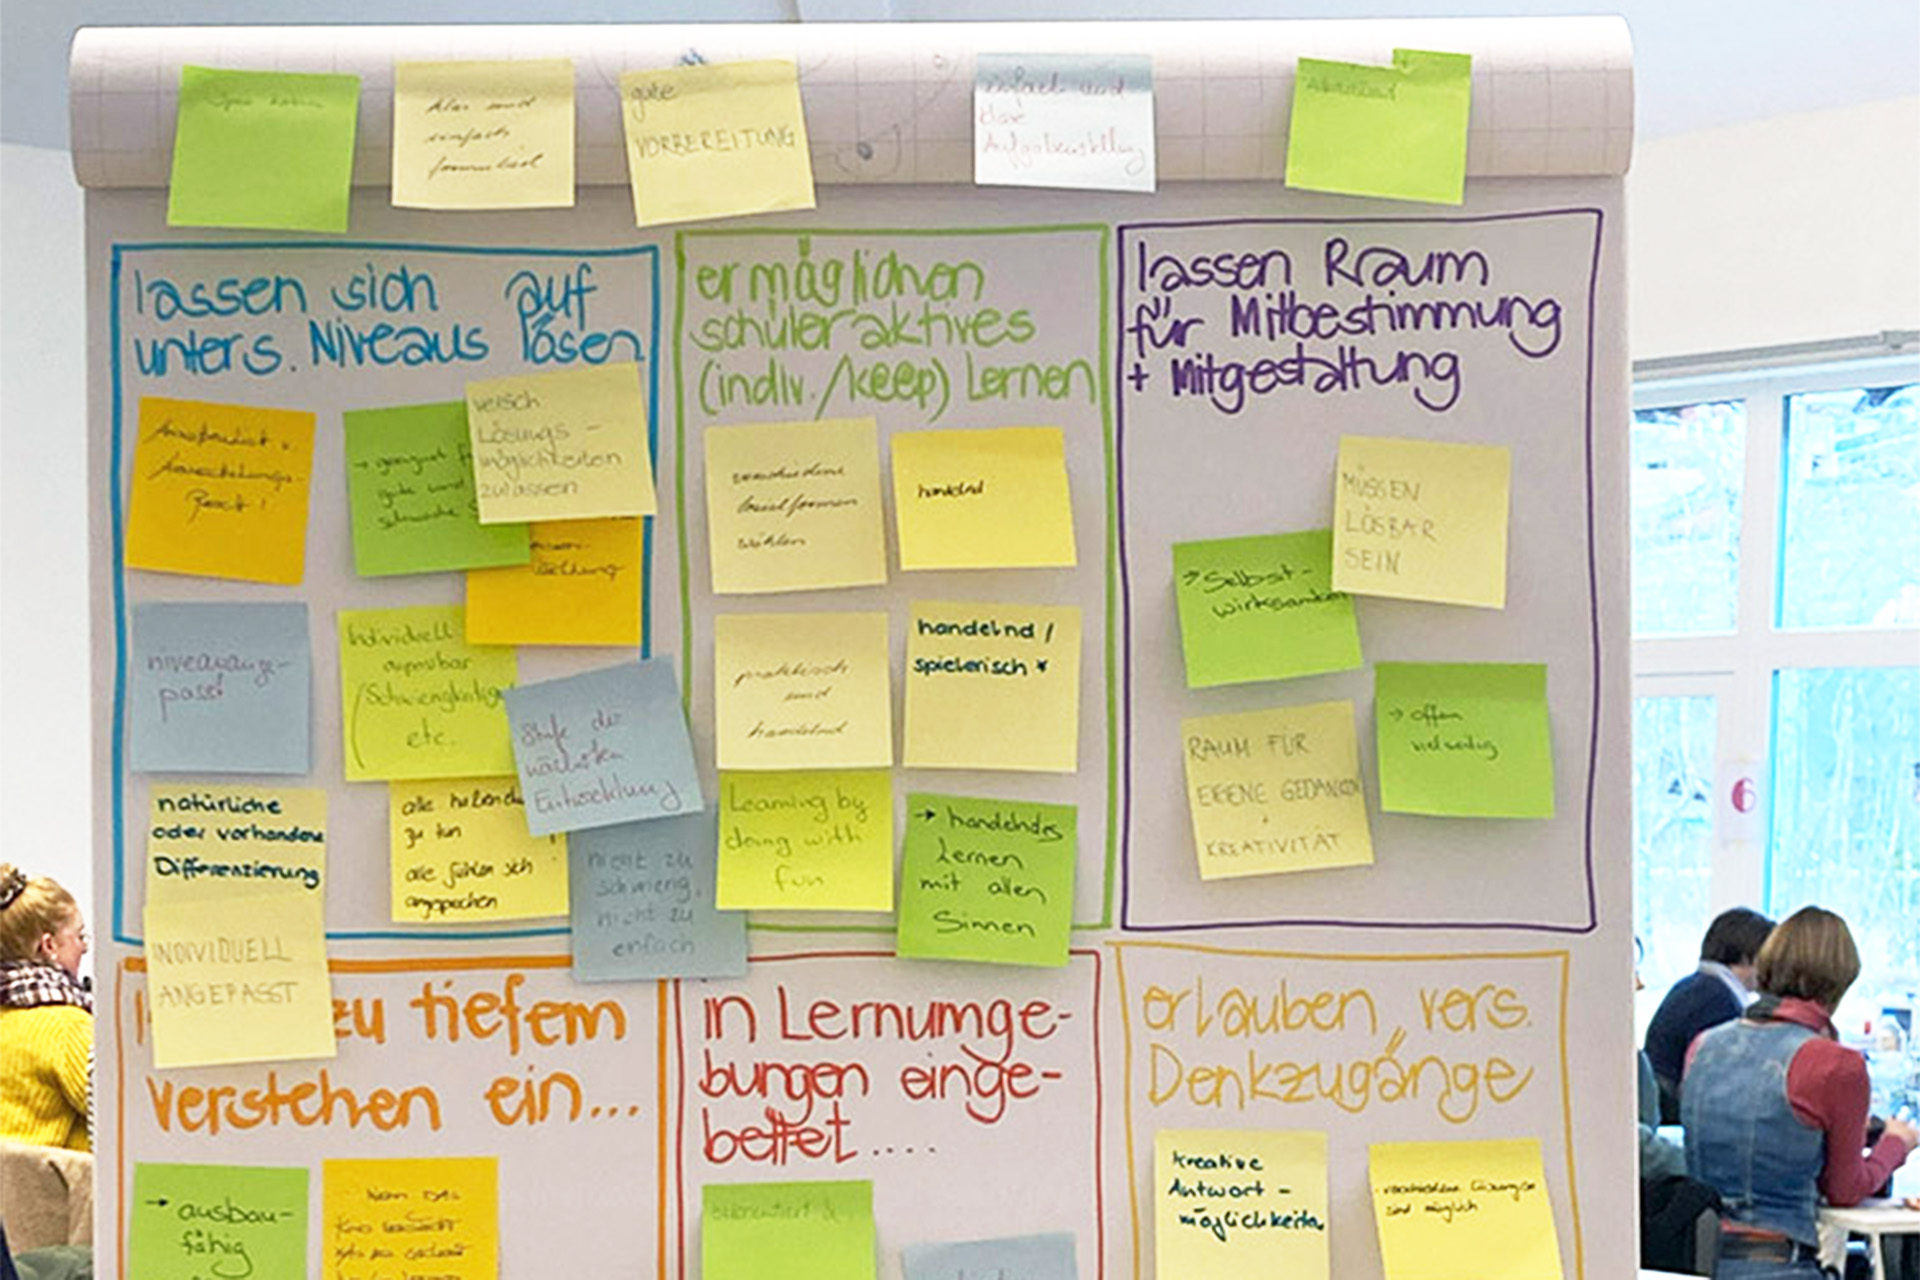 klar und
einfach
formuliert
gute
VORBEREITUNG
einfach und
klare
Aufgabenstellung
lassen sich auf
unters. Niveaus lösen
versch
Lösungs-
möglichkeiten
zulassen
→ geeignet
gute und
schwache
niveauange-
passt
Individuell
(Schwierigkeitsg
etc.
Stufe der
nächsten
Entwicklung
natürliche
oder vorhandene
Differenzierung
alle haben
zu tun
alle fühlen sich
angesprochen
nicht zu
schwierig,
nicht zu
einfach
INDIVIDUELL
ANGEPASST
ermöglichen
schüleraktives
(indiv./koop) Lernen
verschiedene
Sozialformen
wählen
handelnd
praktisch
und
handelnd
handelnd /
spielerisch *
Learning by
doing with
fun
→ handelndes
Lernen
mit allen
Sinnen
lassen Raum
für Mitbestimmung
+ Mitgestaltung
MÜSSEN
LÖSBAR
SEIN
→ Selbst-
wirksamkeit
RAUM FÜR
EIGENE GEDANKEN
+
KREATIVITÄT
→ offen
vielseitig
zu tiefem
verstehen ein...
→ ausbau-
fähig
in Lernumge-
bungen einge-
bettet....
erlauben vers.
Denkzugänge
kreative
Antwort-
möglichkeiten
verschiedene Lösungen
sind möglich